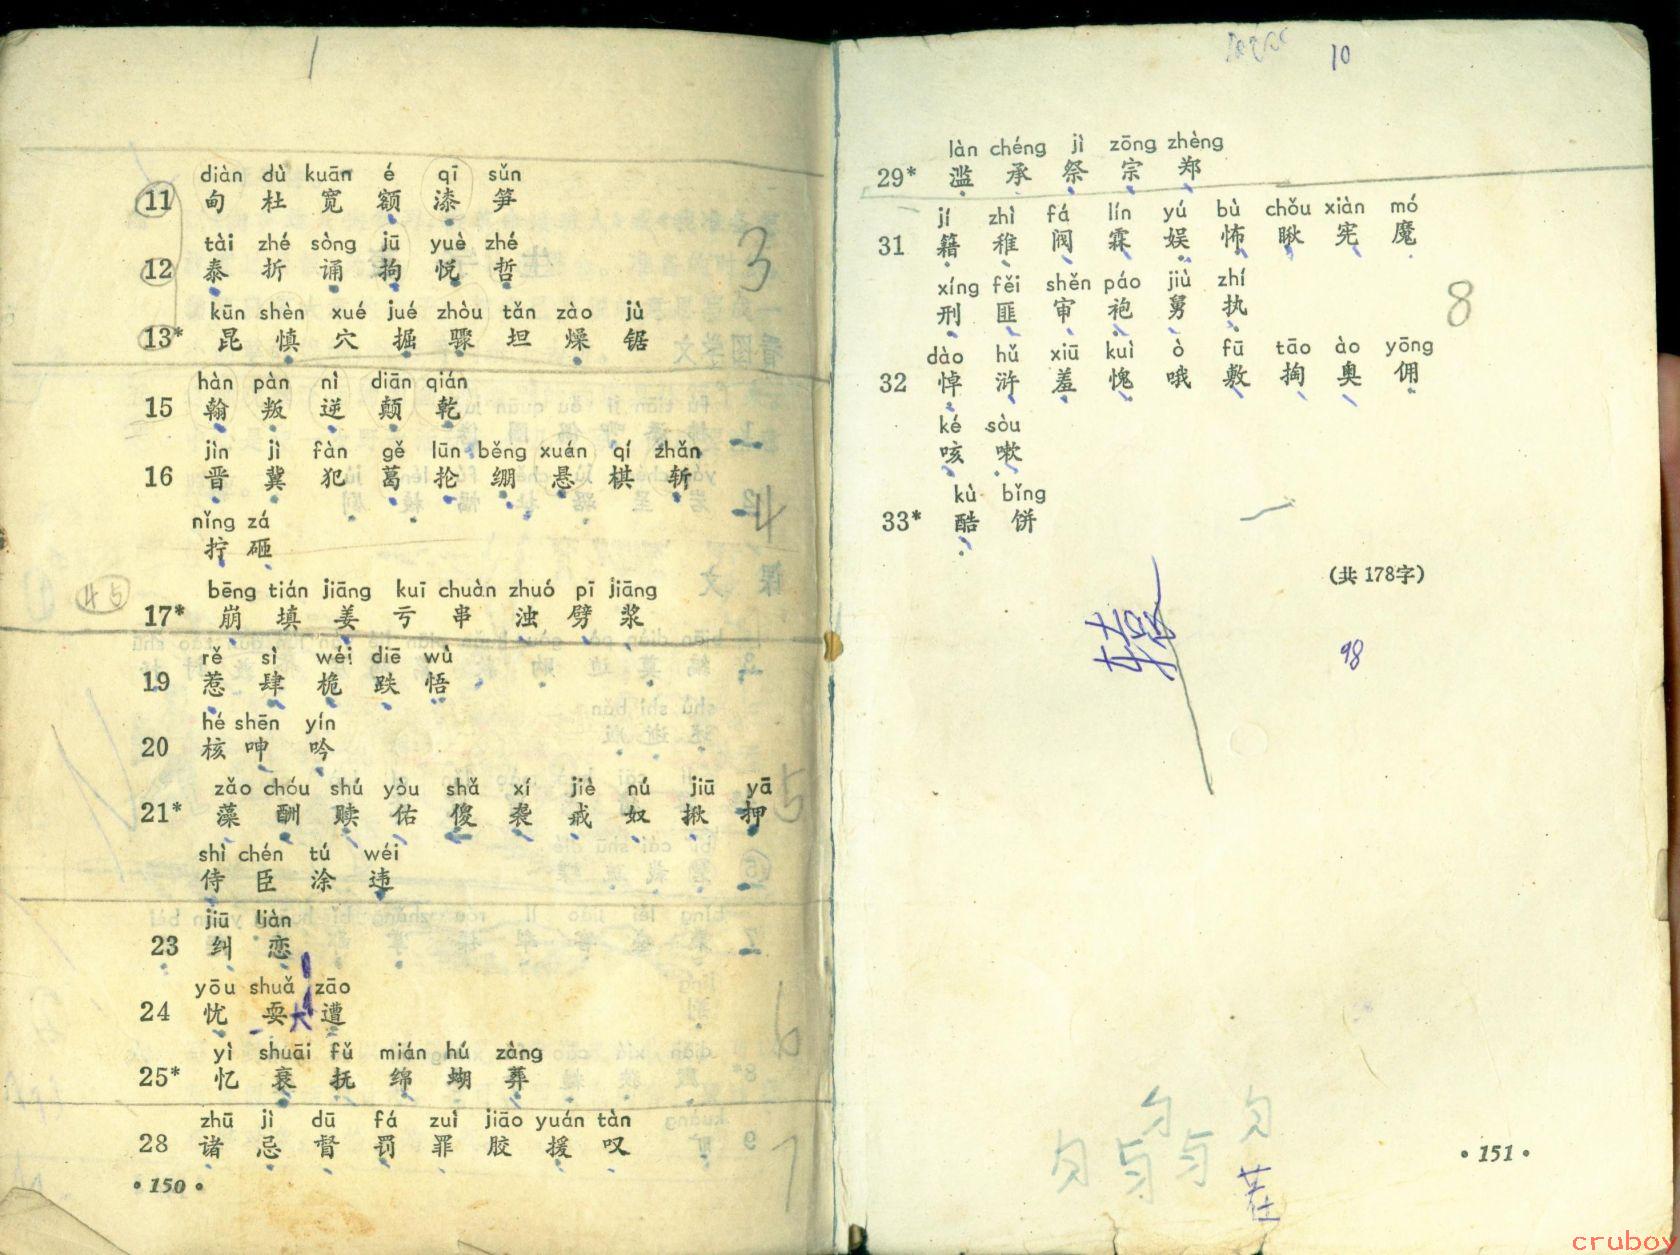 1
diàn dù kuān é qī sǔn
11 甸 杜 宽 额 漆 笋
tài zhé sòng jū yuè zhé
12 泰 折 诵 拘 悦 哲
3
kūn shèn xué jué zhòu tǎn zào jù
13* 昆 慎 穴 掘 骤 坦 燥 锯
hàn pàn nì diān qián
15 翰 叛 逆 颠 乾
jìn jì fàn gě lūn běng xuán qí zhǎn
16 晋 冀 犯 葛 抡 绷 悬 棋 斩
4
nǐng zá
拧 砸
45
bēng tián jiāng kuī chuàn zhuó pī jiāng
17* 崩 填 姜 亏 串 浊 劈 浆
rě sì wéi diē wù
19 惹 肆 桅 跌 悟
hé shēn yín
20 核 呻 吟
zǎo chóu shú yòu shǎ xí jiè nú jiū yā
21* 藻 酬 赎 佑 傻 袭 戒 奴 揪 押
5
shì chén tú wéi
侍 臣 涂 违
jiū liàn
23 纠 恋
yōu shuǎ zāo
24 忧 耍 大 遭
6
yì shuāi fǔ mián hú zàng
25* 忆 衰 抚 绵 蝴 葬
zhū jì dū fá zuì jiāo yuán tàn
28 诸 忌 督 罚 罪 胶 援 叹
7
• 150 •
10
làn chéng jì zōng zhèng
29* 滥 承 祭 宗 郑
jí zhì fá lín yú bù chǒu xiàn mó
31 籍 稚 阀 霖 娱 怖 瞅 宪 魔
xíng fěi shěn páo jiù zhí
刑 匪 审 袍 舅 执
8
dào hǔ xiū kuì ò fū tāo ào yōng
32 悼 浒 羞 愧 哦 敷 掏 奥 佣
ké sòu
咳 嗽
kù bǐng
33* 酷 饼
(共 178字)
98
• 151 •
cruboy